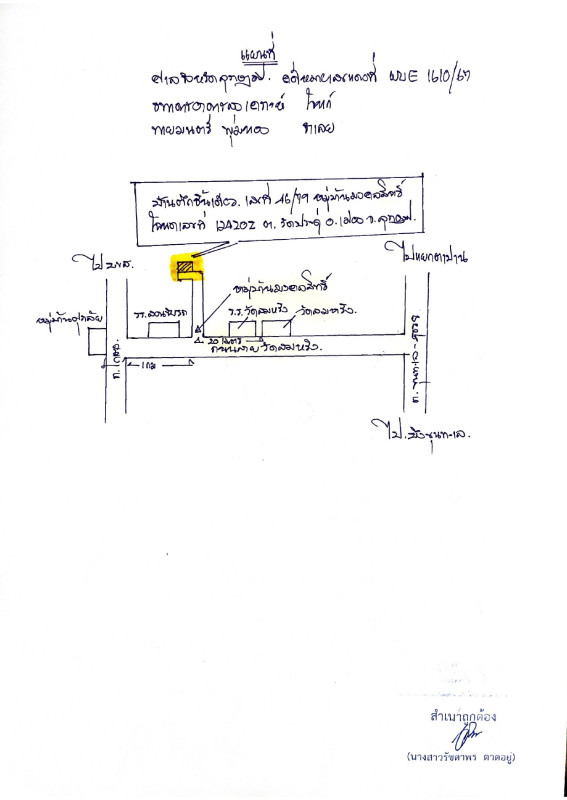 แผนที่
ศาลจังหวัด คดีหมายเลขแดงที่ ผบE 1610/67
ธนาคารอาคารสงเคราะห์ โจทก์
นายมนตรี พุ่มทอง จำเลย
บ้านตึกชั้นเดียว เลขที่ 46/79 หมู่บ้านมงคลสิทธิ์
โฉนดเลขที่ 124202 ต. วัดประดู่ อ. เมือง จ.
ไป บขส.
ไปแยกตาปาน
หมู่บ้านมงคลสิทธิ์
หมู่บ้าน
รร. สอนขับรถ
ร.ร. วัดสมหวัง
วัดสมหวัง
20 เมตร
ถนนสายวัดสมหวัง
1 กม
ไป.
สำเนาถูกต้อง
(นางสาวรัชดาพร ตาดอยู่)